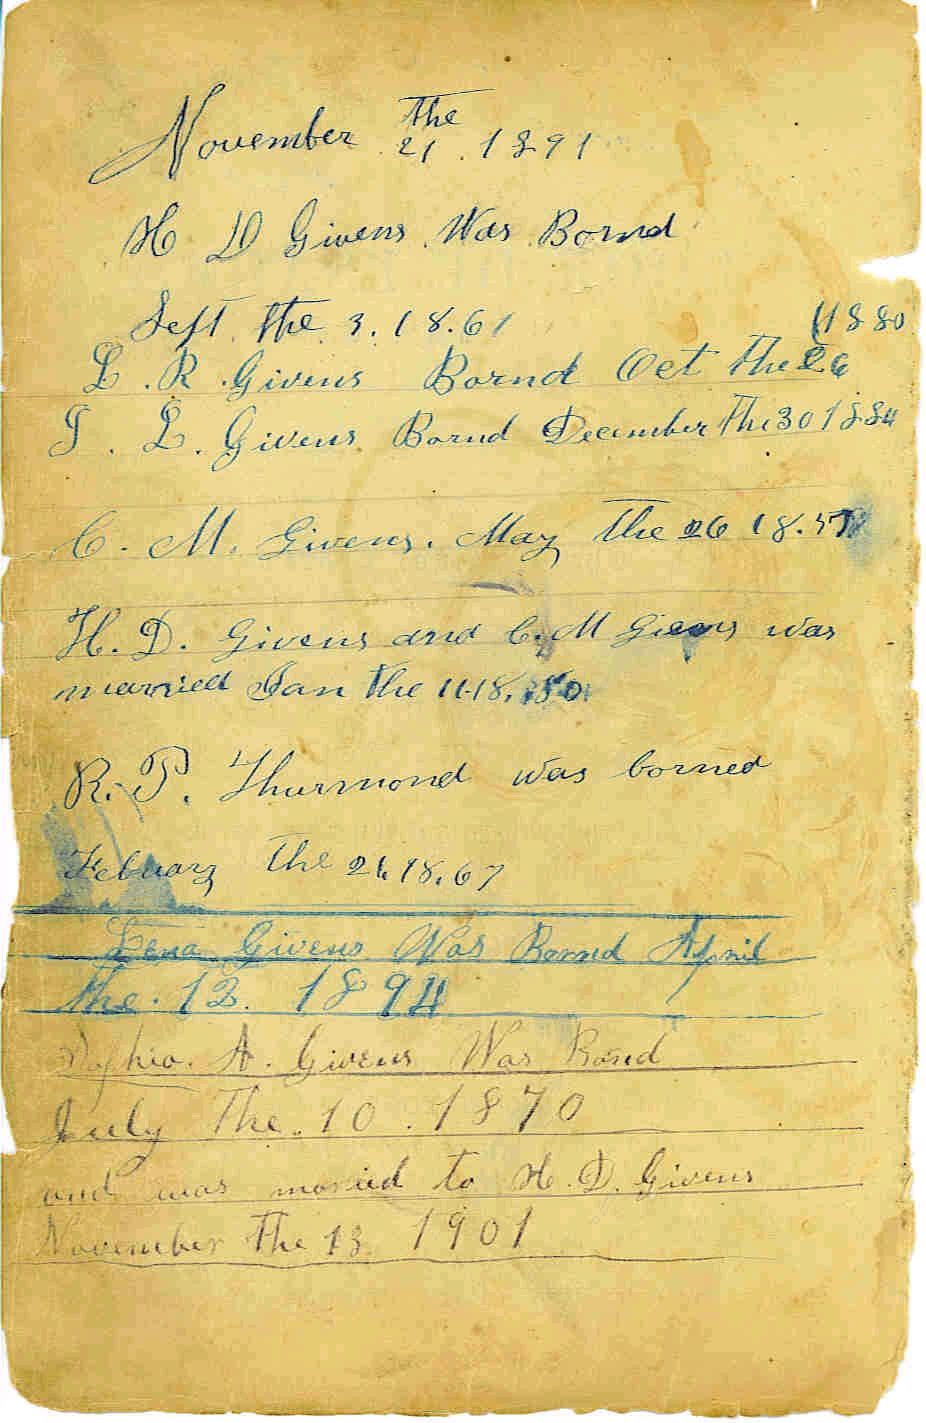 November the 21. 1891
H D Givens Was Bornd
Sept. the 3. 18.61
L. R. Givens Bornd Oct the 26 1880
J. L. Givens Bornd December the 30 1884
C. M. Givens. May the 26 18.
H. D. Givens and C. M Givens was
married Jan the 11-18.80
R. P. Thurmond was borned
Febuary the 21.18.67
Lena Givens Was Bornd April
the. 13. 1894
A. Givens Was Bornd
July The. 10. 1870
and was maried to H. D. Givens
November the 13 1901